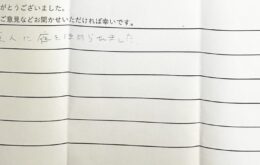 がとうございました。
ご意見などお聞かせいただければ幸いです。
人に庭をほめられました